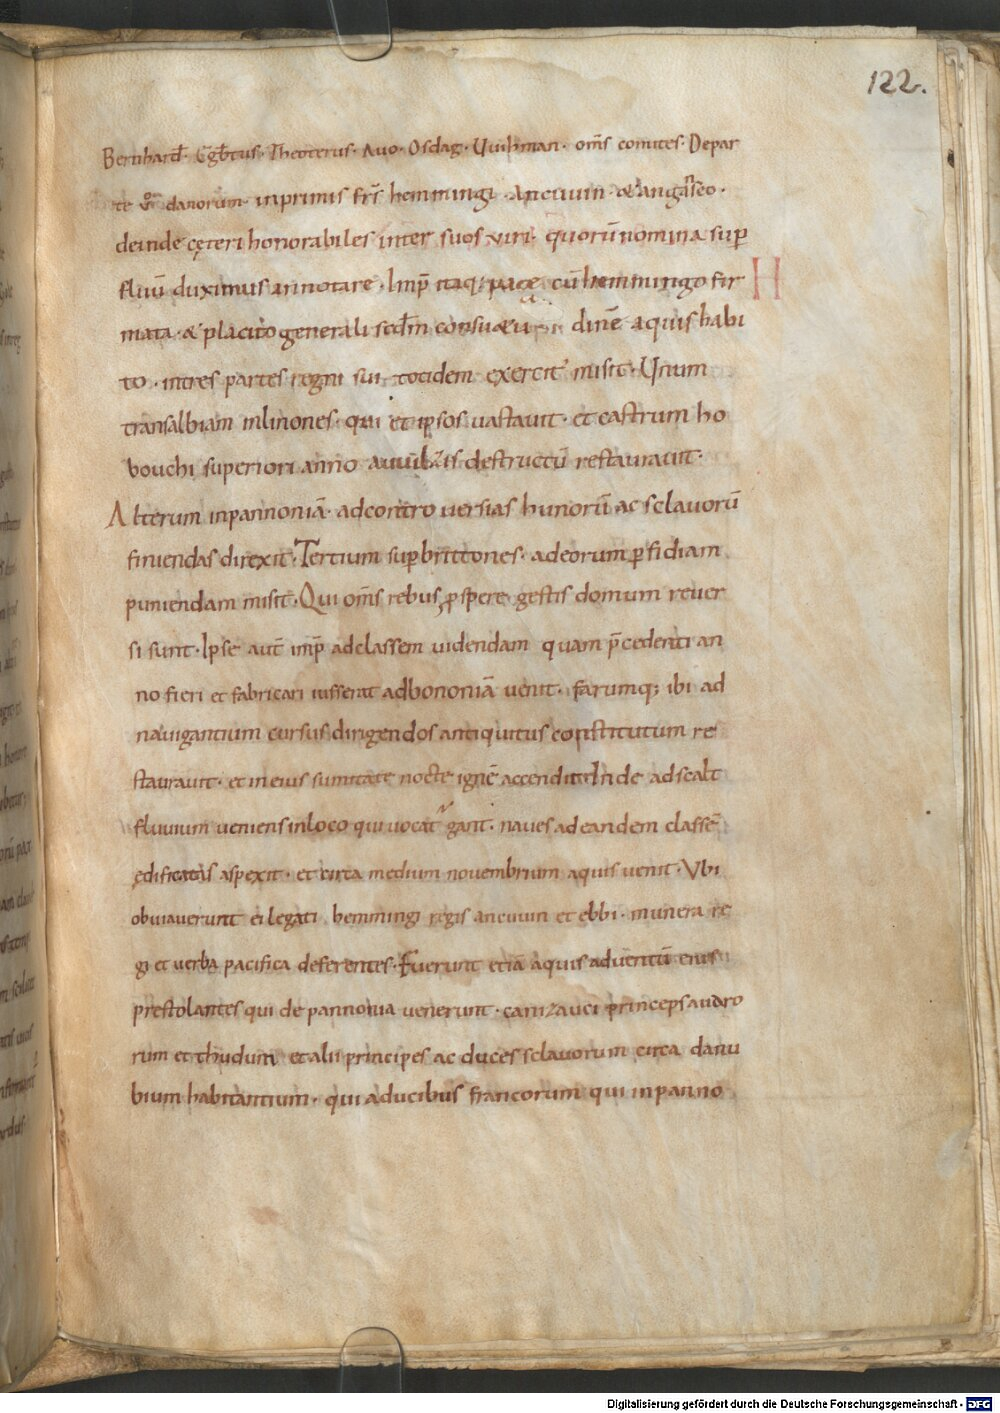 122.
Bernhard᷒. Egb̄tus. Theoterus. Auo. Osdag. Uuihman. om̄s comites. Depar
te ū danorum. inprimis frs̄ hemmingi. Ancuuin. & angaseo.
deinde cęteri honorabiles inter suos viri. quorū nomina sup̄
fluū duximus annotare. Imp̄ itaq; pace cū hemmingo fir
H
mata. & placito generali scd̄m consu&u dinē aquis habi
to. intres partes regni sui totidem exercit᷒ misit. Unum
transalbiam inlinones. qui et ipsos uastauit. et castrum ho
bouchi superiori anno a destructū restaurauit.
Alterum inpannoniā. adcontro uersias hunorū ac sclauorū
finiendas direxit. Tertium sup̄brittones. adeorum p̄fidiam
puniendam misit. Qui om̄s rebus prospere gestis domum reuer
si sunt. Ipse aut̄ imp̄ adclassem uidendam quam p̄cedenti an
no fieri et fabricari iusserat adbononiā uenit. farumq; ibi ad
nauigantium cursus dirigendos antiquitus constitutum re
staurauit. et in eius sumitate nocte ignē accendit. Inde adscalt
fluuium ueniens inloco qui uocat᷒ gant. naues ad eandem classē
ędificatas aspexit. et circa medium nouembrium aquis uenit. Ubi
obuiauerunt ei legati hemmingi regis ancuuin et ebbi. munera re
gi et uerba pacifica deferentes. Fuerunt etiā aquis aduentū eius
prestolantes qui de pannonia uenerunt. canizauci princeps auaro
rum et thudun et alii principes ac duces sclauorum circa danu
bium habitantium. qui aducibus francorum qui inpanno
Digitalisierung gefördert durch die Deutsche Forschungsgemeinschaft - DFG